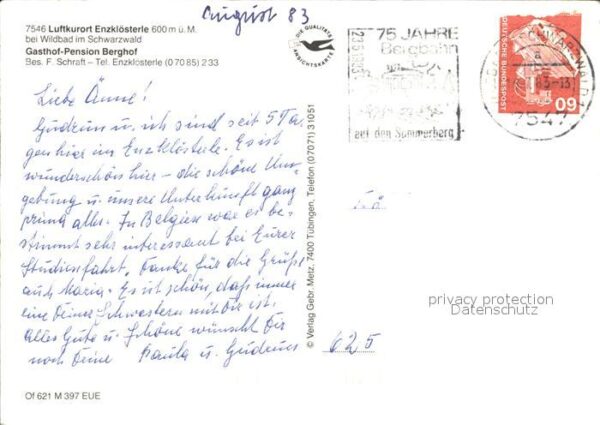 August 83
7546 Luftkurort Enzklösterle 600 m ü. M.
bei Wildbad im Schwarzwald
Gasthof-Pension Berghof
Bes. F. Schraft – Tel. Enzklösterle (0 70 85) 2 33
DIE QUALITÄTS
ANSICHTSKARTE
75 JAHRE
Bergbahn
auf den Sommerberg
DEUTSCHE BUNDESPOST
60
7547
Liebe Änne!
Gudrun u. ich sind seit 5 Ta-
gen hier im Enzklösterle. Es ist
wunderschön hier – die schöne Um-
gebung u. unsere Unterkunft ganz
prima alles. In Belgien war es be-
stimmt sehr interessant bei Eurer
Studienfahrt. Danke für die Grüße
auch Maria. Es ist schön, daß immer
eine Deiner Schwestern mit Dir ist.
Alles Gute u. Schöne wünscht Dir
noch Deine Paula u. Gudrun
© Verlag Gebr. Metz, 7400 Tübingen, Telefon (07071) 31051
privacy protection
Datenschutz
625
Of 621 M 397 EUE